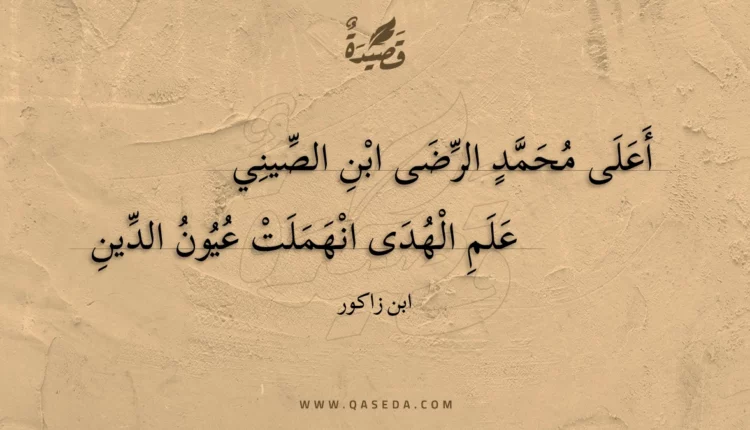 قَصِيدَةٌ
أَعَلَى مُحَمَّدٍ الرِّضَى ابْنِ الصِّينِي
عَلَمِ الْهُدَى انْهَمَلَتْ عُيُونُ الدِّينِ
ابن زاكور
WWW.QASEDA.COM